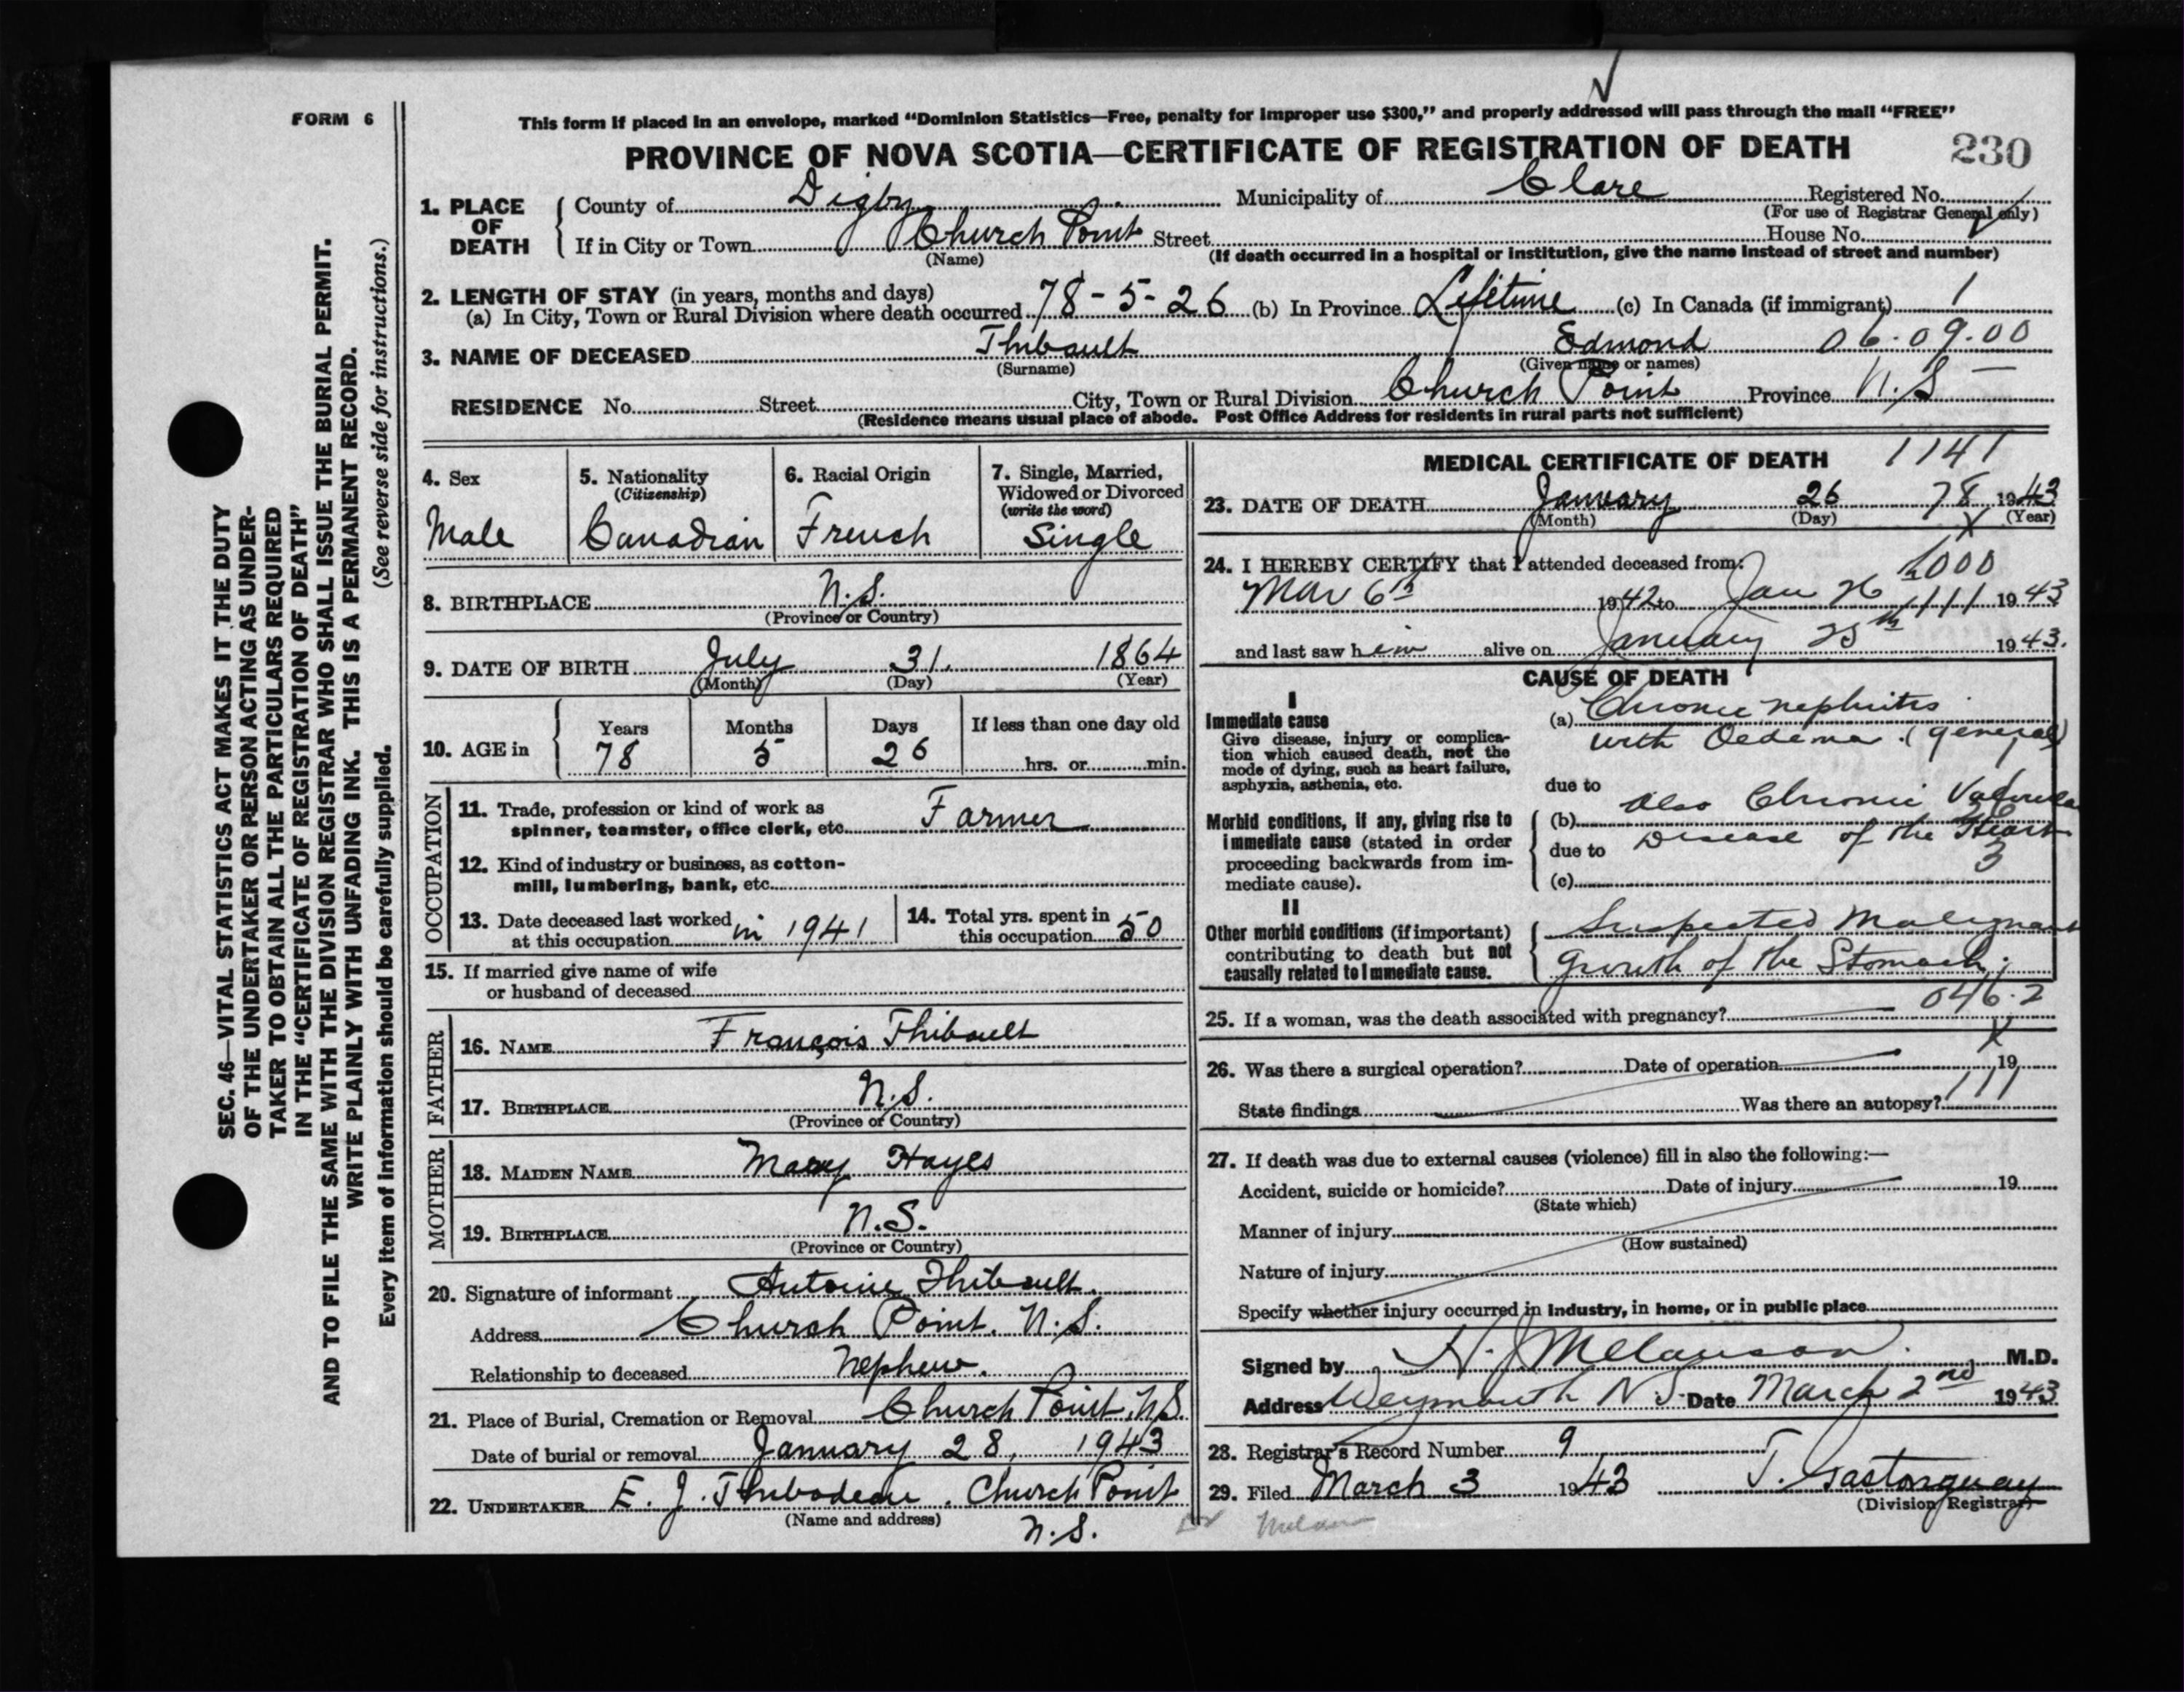 FORM 6
This form if placed in an envelope, marked “Dominion Statistics—Free, penalty for improper use $300,” and properly addressed will pass through the mail “FREE”
PROVINCE OF NOVA SCOTIA—CERTIFICATE OF REGISTRATION OF DEATH 230
1. PLACE OF DEATH
County of Digby Municipality of Clare Registered No.
(For use of Registrar General only)
If in City or Town Church Point Street House No.
(Name) (If death occurred in a hospital or institution, give the name instead of street and number)
2. LENGTH OF STAY (in years, months and days)
(a) In City, Town or Rural Division where death occurred 78-5-26 (b) In Province Lifetime (c) In Canada (if immigrant) 1
3. NAME OF DECEASED Thibault Edmond 06.09.00
(Surname) (Given name or names)
RESIDENCE No. Street City, Town or Rural Division Church Point Province N.S
(Residence means usual place of abode. Post Office Address for residents in rural parts not sufficient)
SEC. 46—VITAL STATISTICS ACT MAKES IT THE DUTY
OF THE UNDERTAKER OR PERSON ACTING AS UNDER-
TAKER TO OBTAIN ALL THE PARTICULARS REQUIRED
IN THE “CERTIFICATE OF REGISTRATION OF DEATH”
AND TO FILE THE SAME WITH THE DIVISION REGISTRAR WHO SHALL ISSUE THE BURIAL PERMIT.
WRITE PLAINLY WITH UNFADING INK. THIS IS A PERMANENT RECORD.
Every item of information should be carefully supplied. (See reverse side for instructions.)
4. Sex
Male
5. Nationality
(Citizenship)
Canadian
6. Racial Origin
French
7. Single, Married,
Widowed or Divorced
(write the word)
Single
8. BIRTHPLACE N.S.
(Province or Country)
9. DATE OF BIRTH July 31. 1864
(Month) (Day) (Year)
10. AGE in
Years Months Days If less than one day old
78 5 26 hrs. or min.
OCCUPATION
11. Trade, profession or kind of work as
spinner, teamster, office clerk, etc. Farmer
12. Kind of industry or business, as cotton-
mill, lumbering, bank, etc.
13. Date deceased last worked
at this occupation in 1941
14. Total yrs. spent in
this occupation 50
15. If married give name of wife
or husband of deceased
FATHER
16. NAME François Thibault
17. BIRTHPLACE N.S.
(Province or Country)
MOTHER
18. MAIDEN NAME Mary Hayes
19. BIRTHPLACE N.S.
(Province or Country)
20. Signature of informant Antoine Thibault.
Address Church Point. N.S.
Relationship to deceased Nephew.
21. Place of Burial, Cremation or Removal Church Point, N.S.
Date of burial or removal January 28, 1943
22. UNDERTAKER E. J. Thibodeau, Church Point
(Name and address) N.S.
MEDICAL CERTIFICATE OF DEATH 1141
23. DATE OF DEATH January 26 78 1943
(Month) (Day) X (Year)
24. I HEREBY CERTIFY that I attended deceased from:
Mar 6th 1942 to Jan 26 1943
and last saw him alive on January 25th 1943.
CAUSE OF DEATH
I
Immediate cause
Give disease, injury or complica-
tion which caused death, not the
mode of dying, such as heart failure,
asphyxia, asthenia, etc.
(a) Chronic nephritis
with Oedema. (general)
due to
Morbid conditions, if any, giving rise to
immediate cause (stated in order
proceeding backwards from im-
mediate cause).
(b) also Chronic Valvular
due to Disease of the Heart
(c) 3
II
Other morbid conditions (if important)
contributing to death but not
causally related to immediate cause.
Suspected Malignant
growth of the Stomach.
046.2
25. If a woman, was the death associated with pregnancy?
X
26. Was there a surgical operation? Date of operation 19
State findings Was there an autopsy? 111
27. If death was due to external causes (violence) fill in also the following:—
Accident, suicide or homicide? Date of injury 19
(State which)
Manner of injury
(How sustained)
Nature of injury
Specify whether injury occurred in industry, in home, or in public place
Signed by H. J Melanson. M.D.
Address Weymouth N.S. Date March 2nd 1943
28. Registrar's Record Number 9
29. Filed March 3 1943
(Division Registrar)